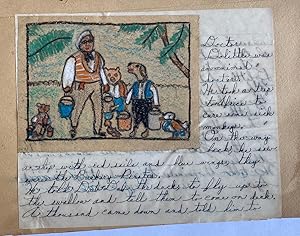 Doctor
Dolittle was
a animal
doctor.
He took a trip
to Africa to
cure some sick
monkeys.
On the way
back he saw
a ship with red sails and blue wings. They
were the Barbary Pirates.
He told the ducks to fly up to
the swallow and tell them to come on deck.
A thousand came down and told him to